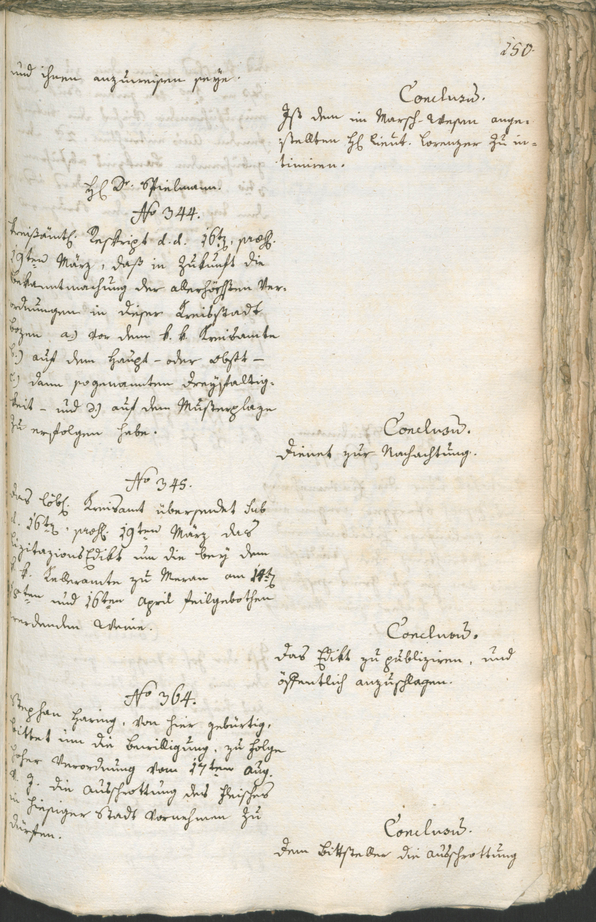 250.
und ihnen anzuweisen seye.
Conclusum.
Ist dem im Marsch-Wesen ange-
stellten H. Lieut. Lorenzer zu in-
timiren.
H. Dr. Spielmann.
No 344.
Kreisämtl. Reskript d. d. 16t. praes.
19ten März, daß in Zukunft die
Bekanntmachung der allerhöchsten Ver-
ordnungen in dieser Kreisstadt
Bozen a.) vor dem k. k. Kreisamte
b.) auf dem Haupt- oder Obst-
c.) dann sogenannten Dreyfaltig-
keit- und d.) auf dem Musterplaze
zu erfolgen habe.
Conclusum.
Dienet zur Nachachtung.
No 345.
Das Löbl. Kreisamt übersendet sub
d. 16t. praes. 19ten März das
Lizitazions Edikt um die bey dem
k. k. Kelleramte zu Meran am 14t.
15ten und 16ten April feilgebothen
werdenden Weine.
Conclusum.
Das Edikt zu publiziren, und
öffentlich anzuschlagen.
No 364.
Stephan Haring, von hier gebürtig,
bittet um die Bewilligung, zu Folge
hoher Verordnung vom 17ten Aug.
v. J. die Ausschrottung des Fleisches
in hiesiger Stadt vornehmen zu
dürfen.
Conclusum.
Dem Bittsteller die Ausschrottung